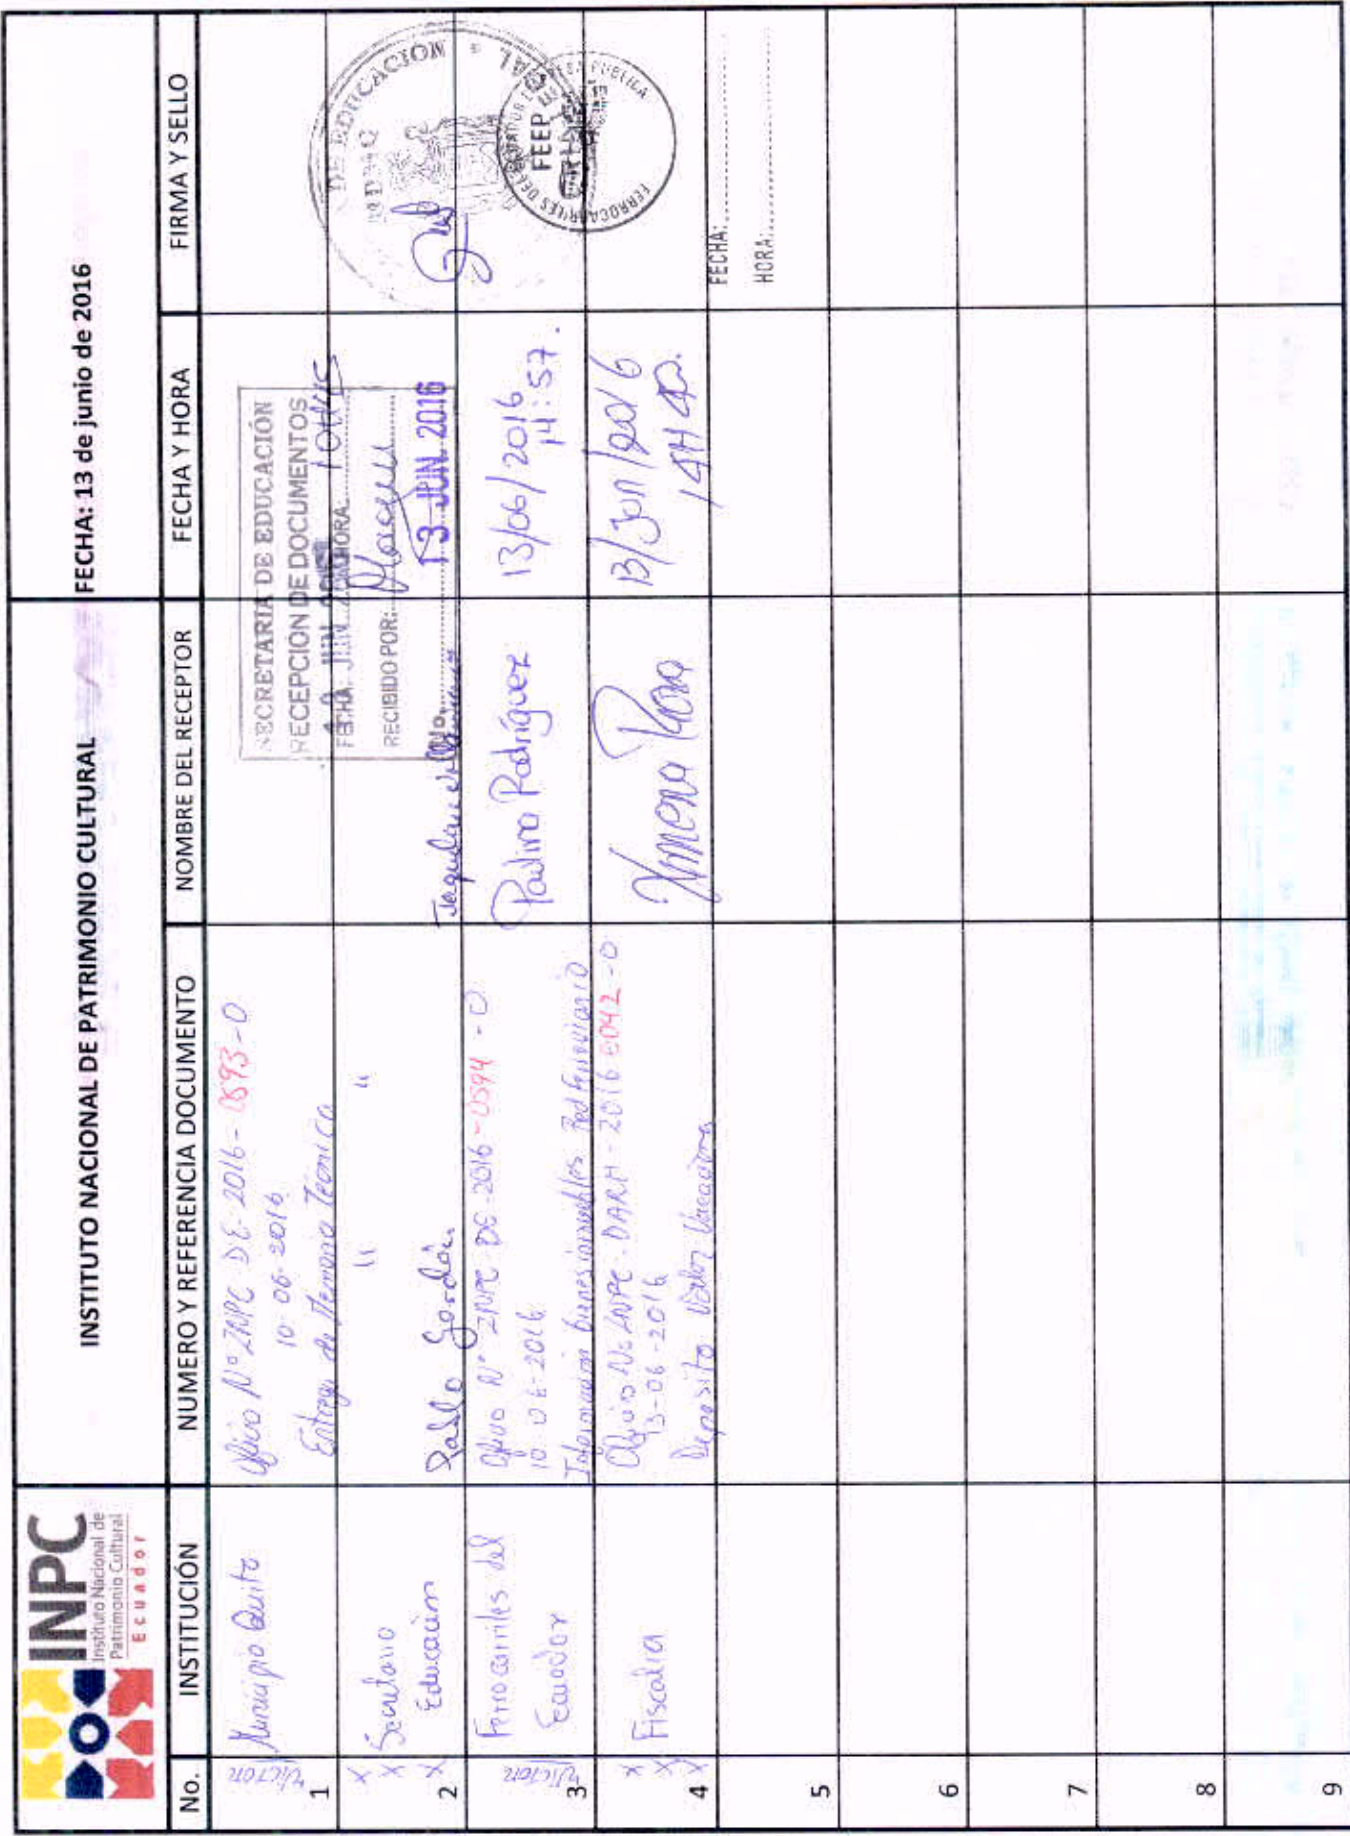 INPC
Instituto Nacional de
Patrimonio Cultural
Ecuador
INSTITUTO NACIONAL DE PATRIMONIO CULTURAL
FECHA: 13 de junio de 2016
No.
INSTITUCIÓN
NUMERO Y REFERENCIA DOCUMENTO
NOMBRE DEL RECEPTOR
FECHA Y HORA
FIRMA Y SELLO
Victor
1
Municipio Quito
Oficio N° INPC DE-2016-0593-O
10-06-2016
Entrega de Memoria Técnica
SECRETARIA DE EDUCACIÓN
RECEPCION DE DOCUMENTOS
FECHA: JUN HORA:
RECIBIDO POR:
X X X
2
Secretario
Educación
" "
Pablo Gordón
13 JUN. 2016
DE EDUCACION
Victor
3
Ferrocarriles del
Ecuador
Oficio N° INPC-DE-2016-0594-O
10-06-2016
Información bienes inmuebles Red Ferroviario
Paulina Rodríguez
13/06/2016
14:57.
FERROCARRILES DEL ECUADOR EMPRESA PUBLICA
FEEP
X X X
4
Fiscalia
Oficio No INPC-DARH-2016-0042-O
13-06-2016
Deposito Valor
Ximena
13/Jun/2016
14H40.
FECHA:
HORA:
5
6
7
8
9